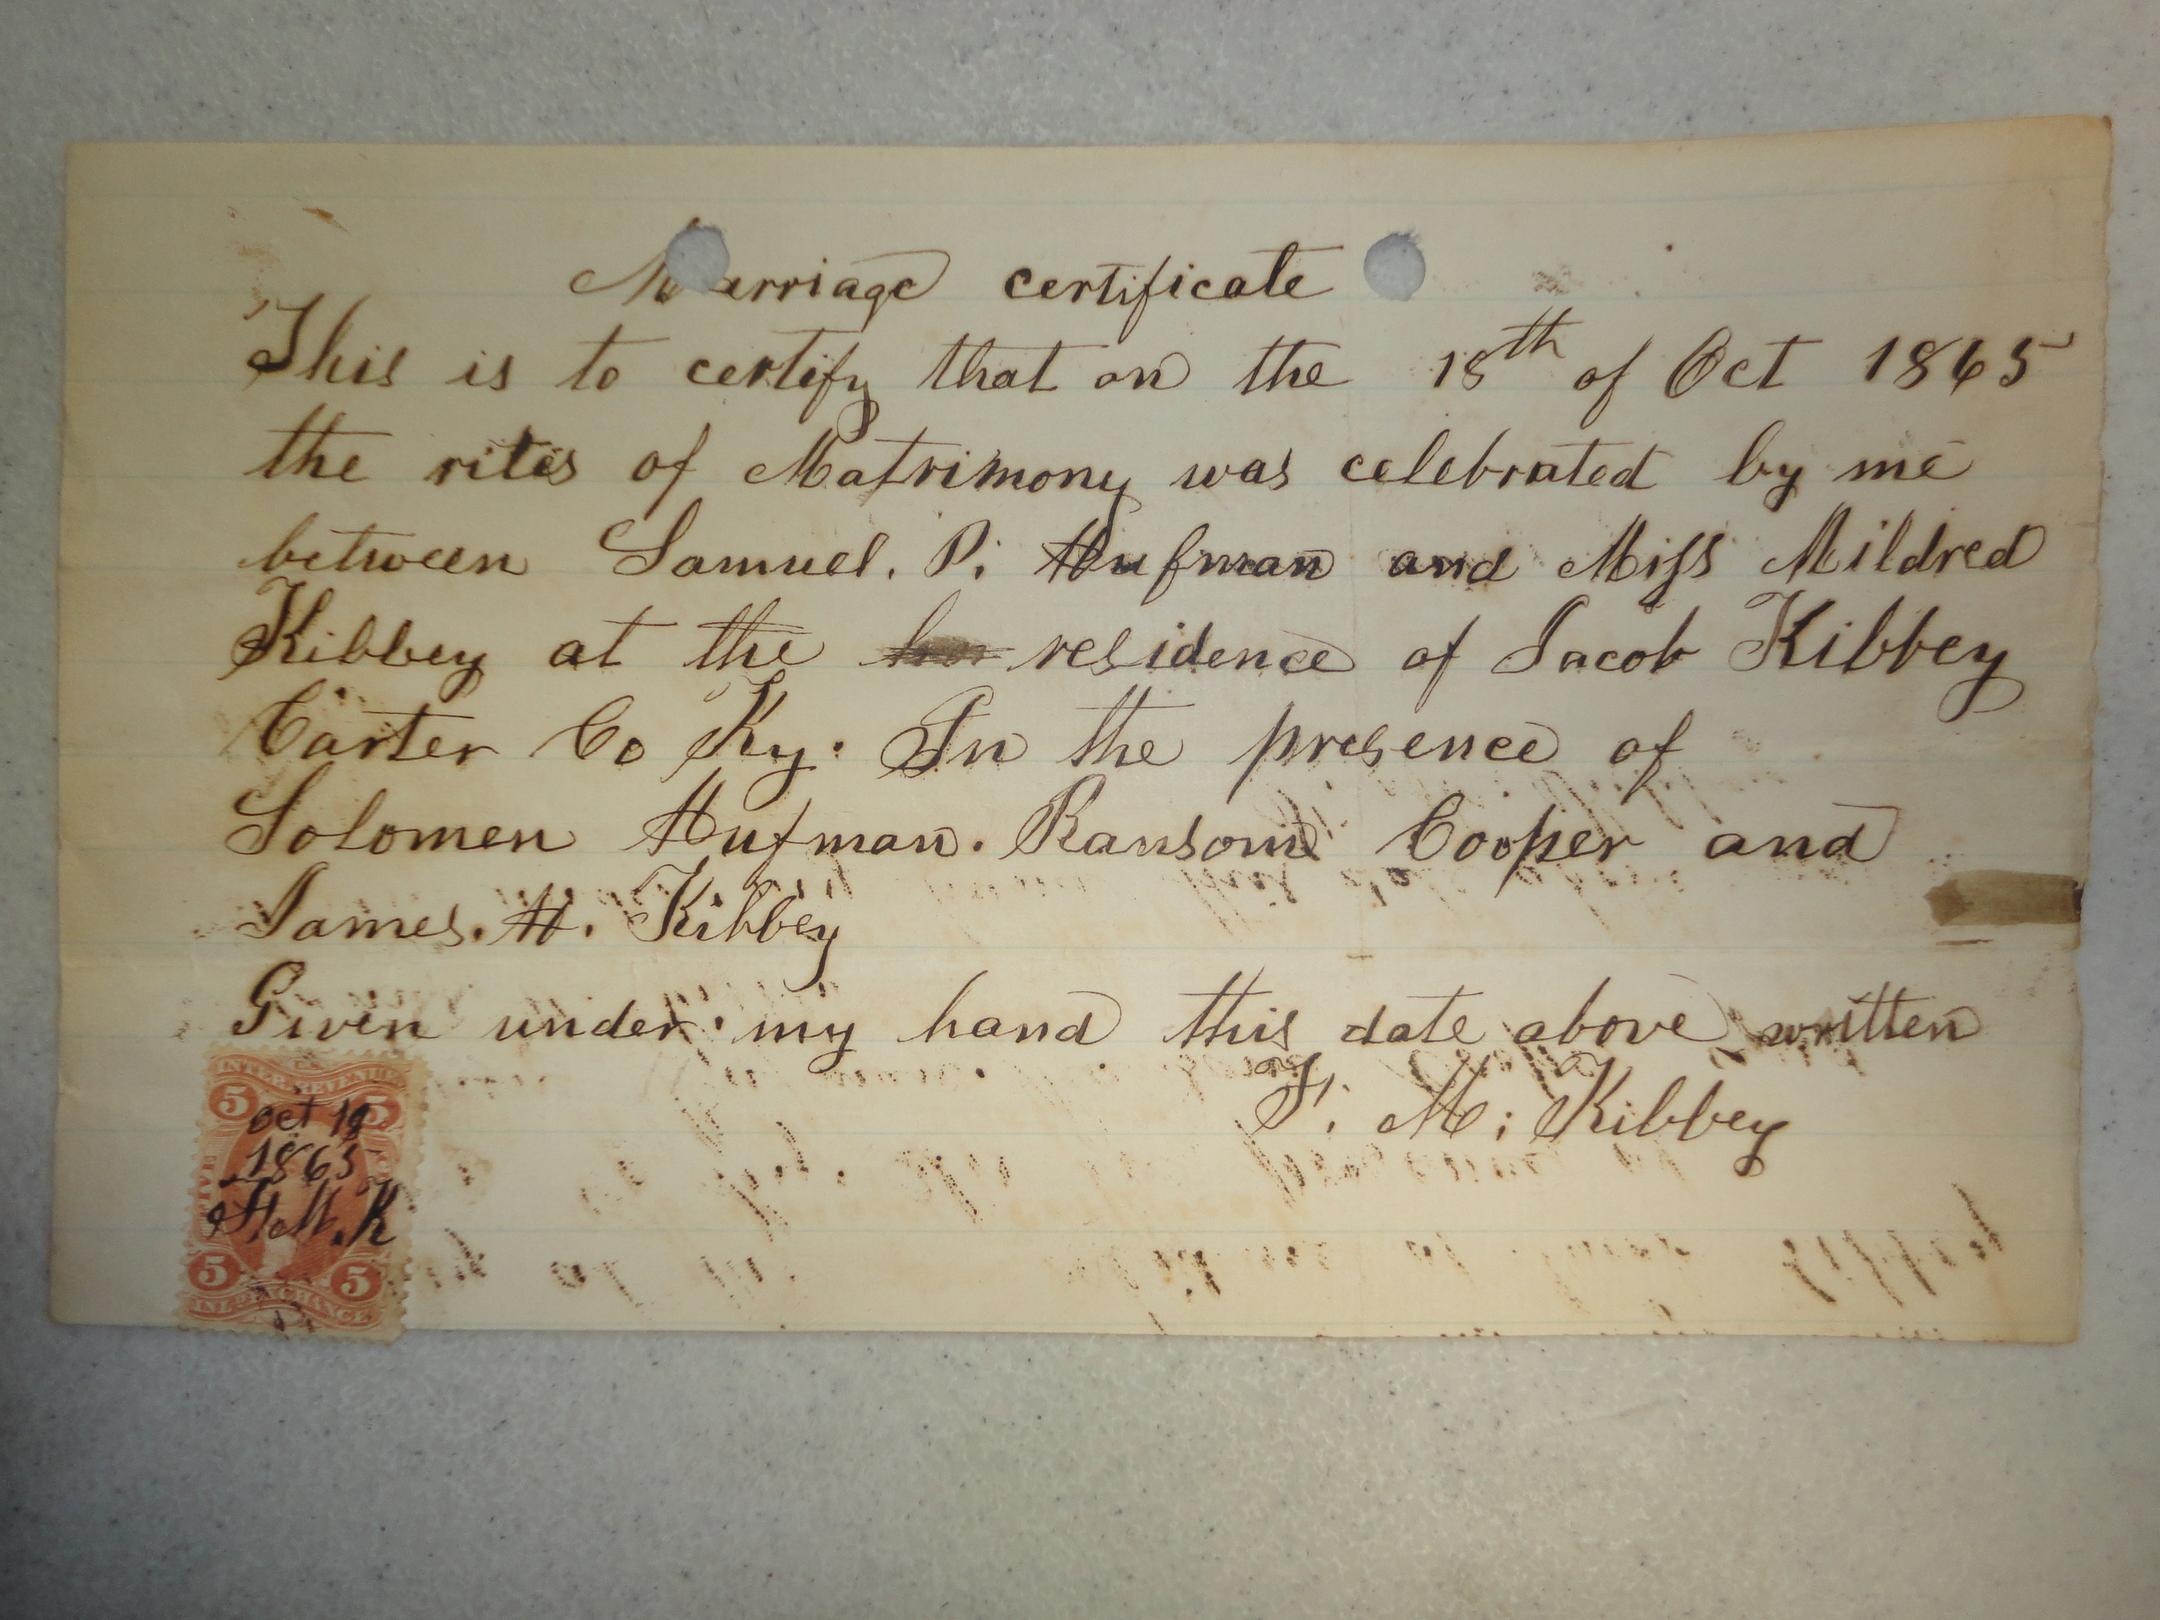 Marriage certificate
This is to certify that on the 18th of Oct 1865
the rites of Matrimony was celebrated by me
between Samuel. P. Hufman and Miss Mildred
Kibbey at the residence of Jacob Kibbey
Carter Co Ky. In the presence of
Solomen Hufman. Ransom Cooper and
James. H. Kibbey
Given under my hand this date above written
F. M. Kibbey
INTER. REVENUE
5 5
Oct 19
1865
5 5
INL. EXCHANGE